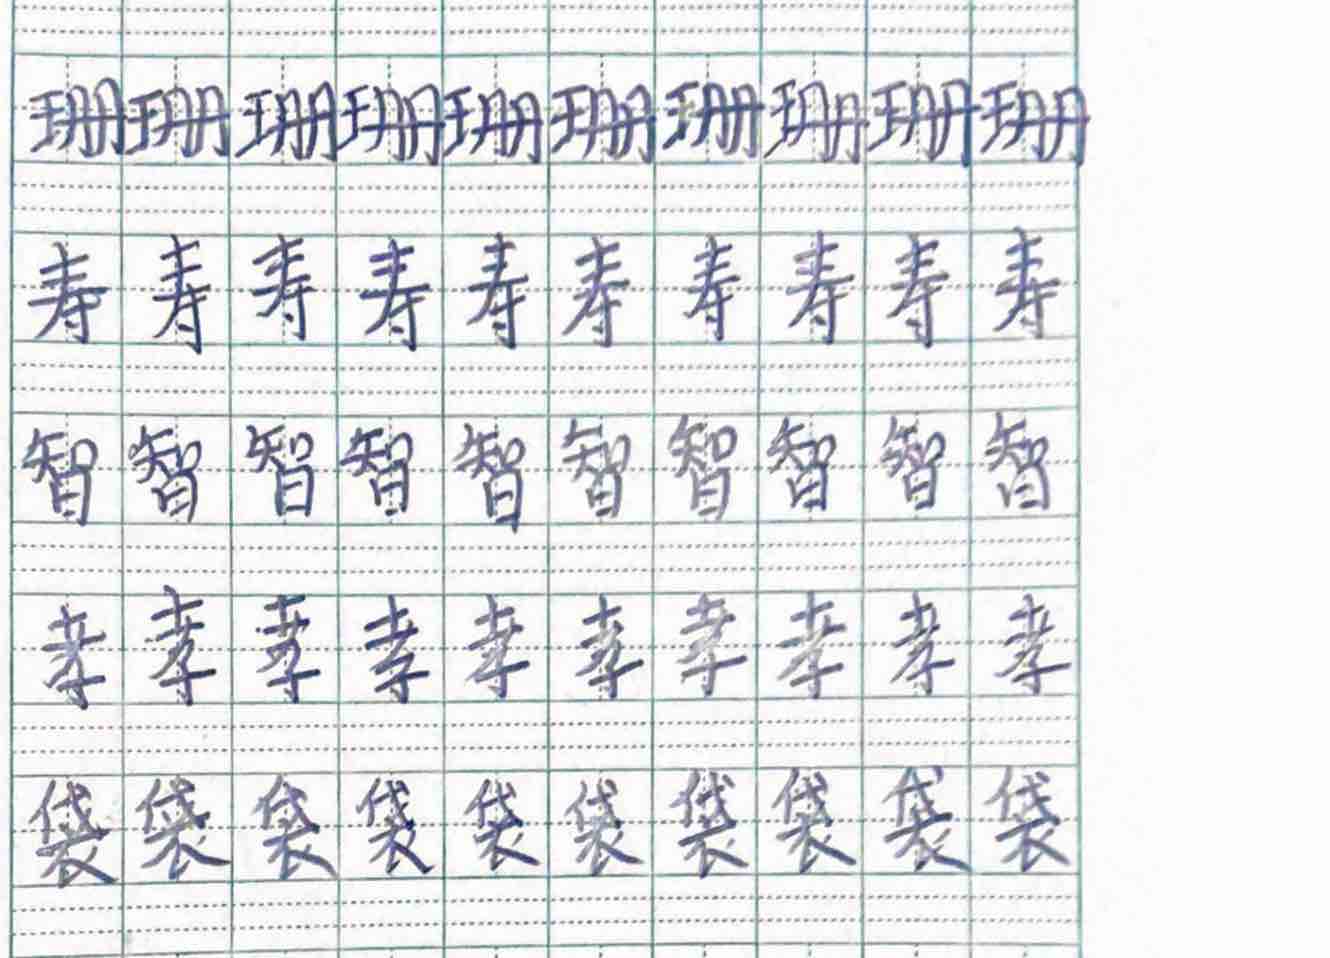 珊珊珊珊珊珊珊珊珊珊
寿寿寿寿寿寿寿寿寿寿
智智智智智智智智智智
孝孝孝孝孝孝孝孝孝孝
袋袋袋袋袋袋袋袋袋袋